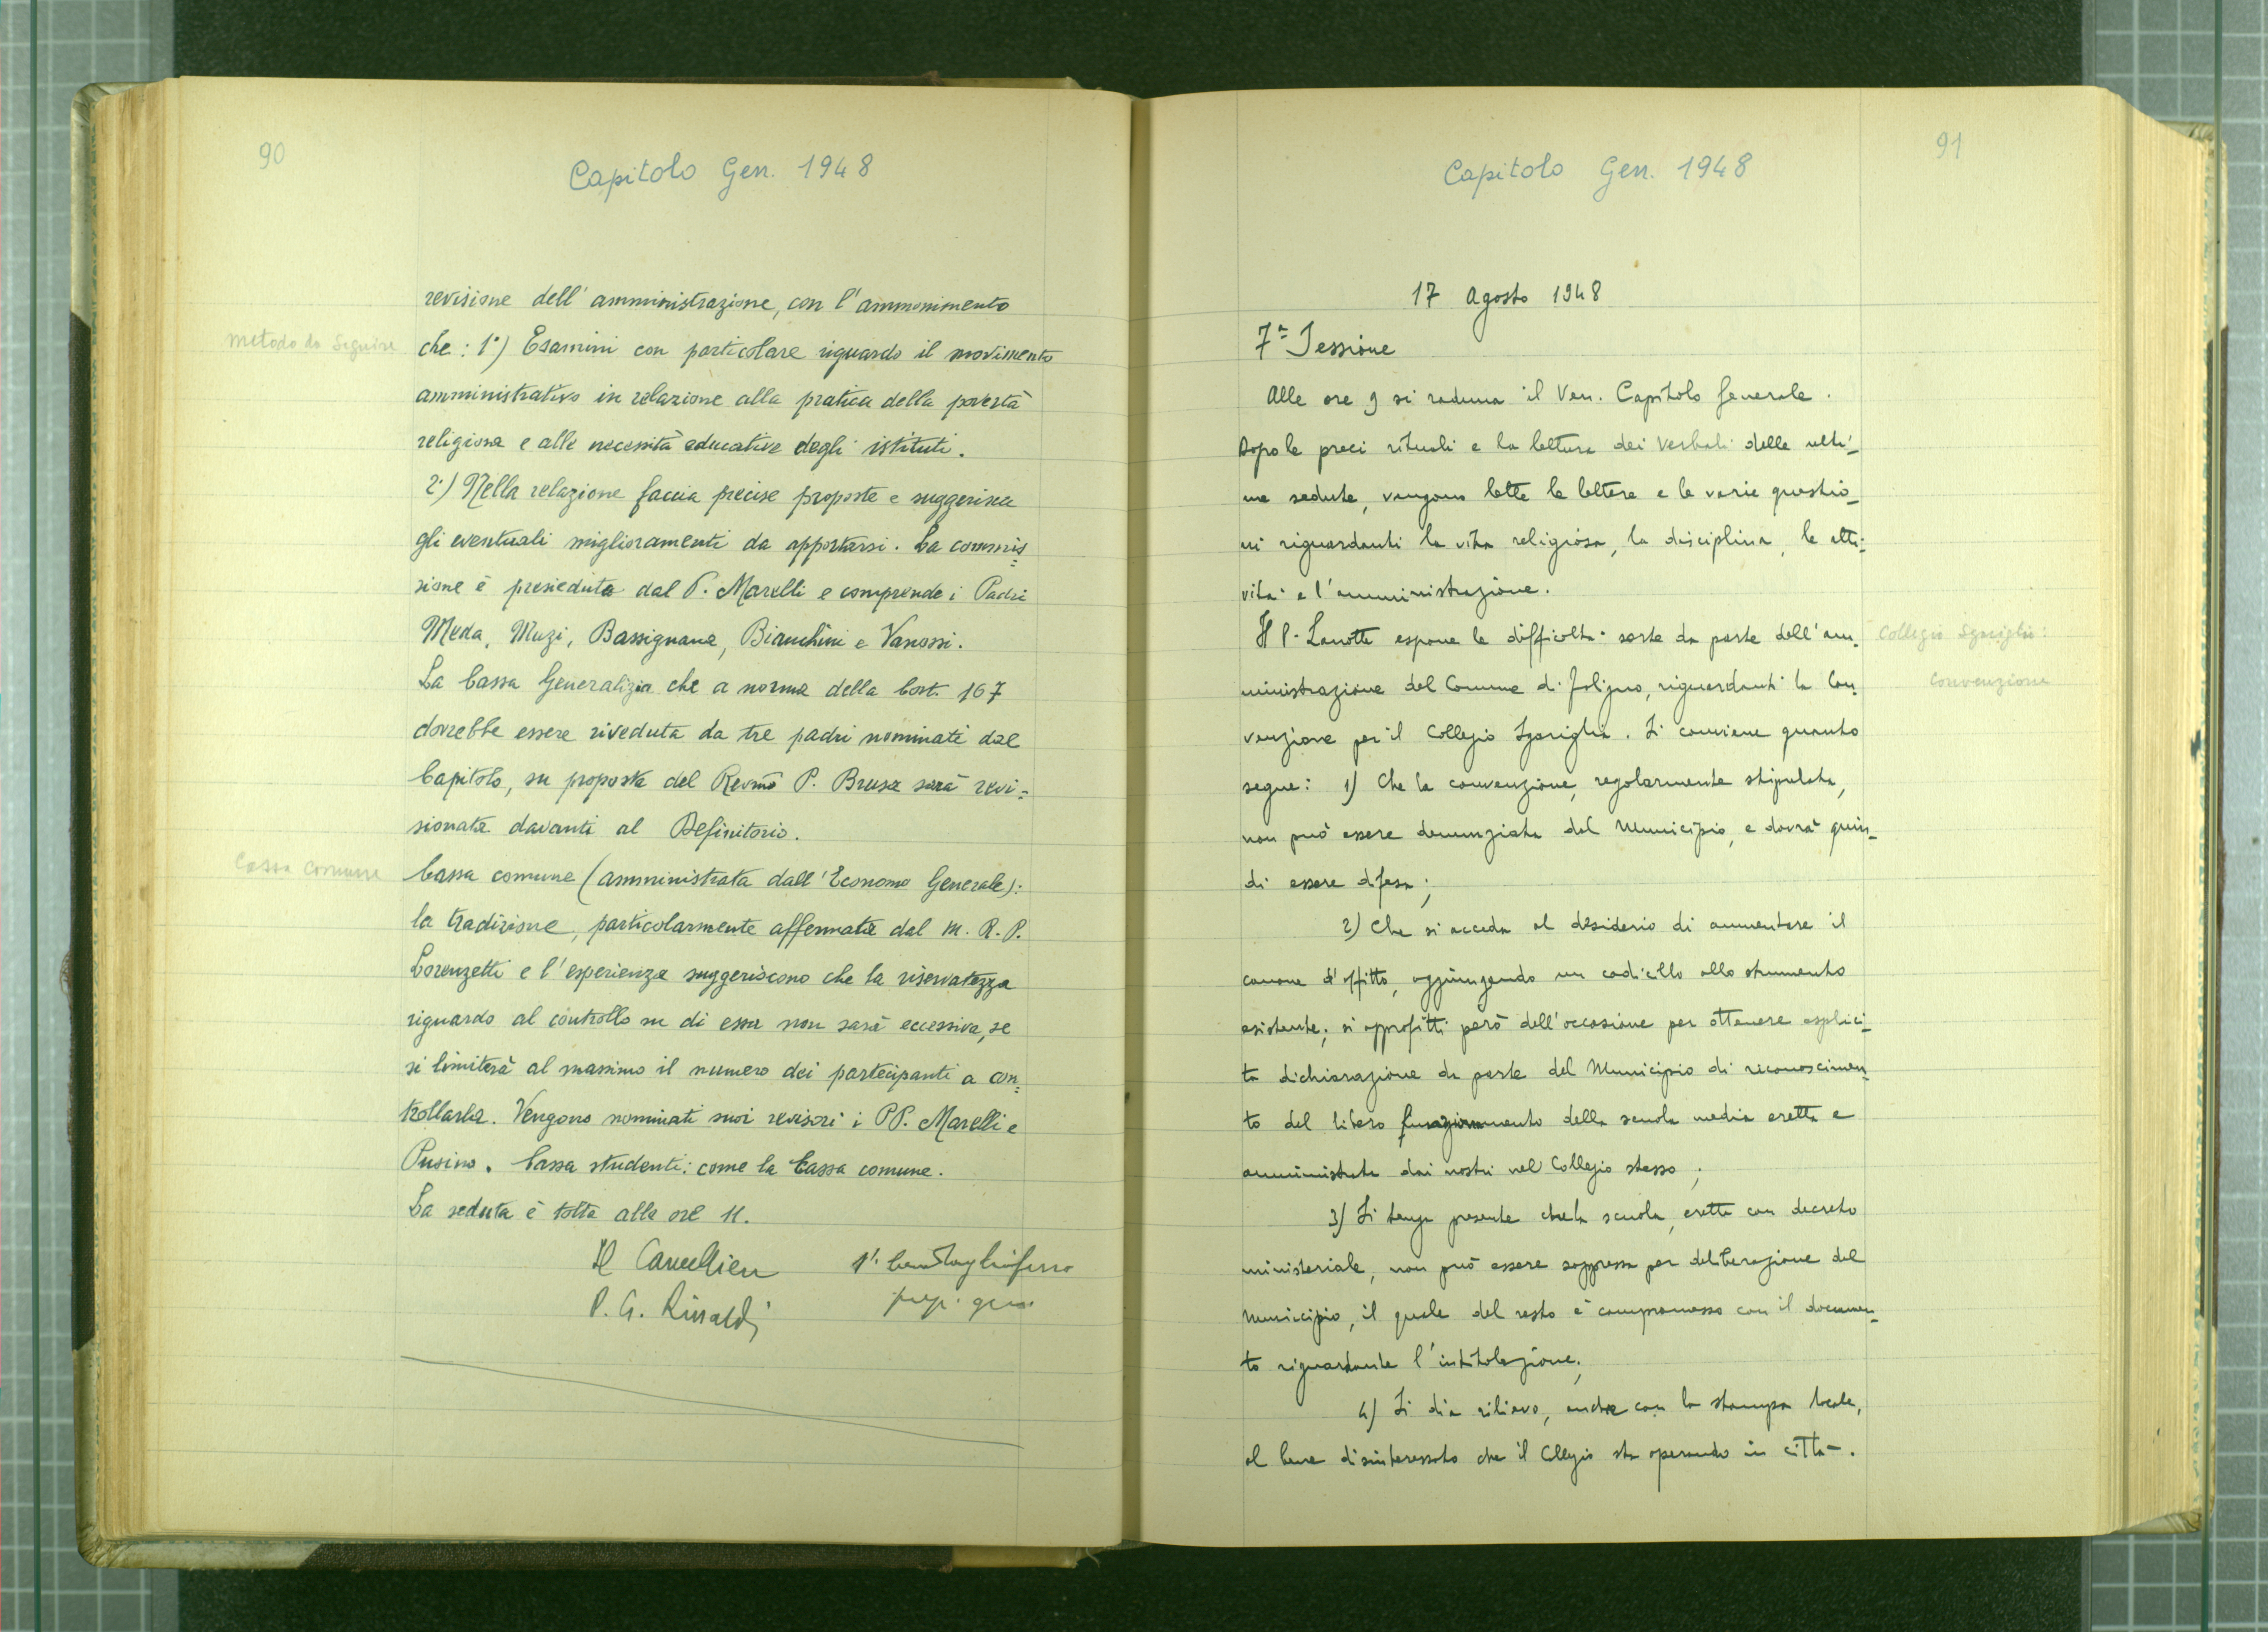 90
Capitolo Gen. 1948
revisione dell'amministrazione, con l'ammonimento
metodo da seguire
che: 1°) Esamini con particolare riguardo il movimento
amministrativo in relazione alla pratica della povertà
religiosa e alle necessità educative degli istituti.
2°) Nella relazione faccia precise proposte e suggerisca
gli eventuali miglioramenti da apportarsi. La commis=
sione è presieduta dal P. Marelli e comprende i Padri
Meda, Muzi, Bassignana, Bianchini e Vanossi.
La Cassa Generalizia che a norma della Cost. 167
dovrebbe essere riveduta da tre padri nominati dal
Capitolo, su proposta del Revmo P. Brusa sarà revi=
sionata davanti al Definitorio.
Cassa comune
Cassa comune (amministrata dall'Economo Generale):
la tradizione, particolarmente affermata dal M. R. P.
Lorenzetti e l'esperienza suggeriscono che la riservatezza
riguardo al controllo su di essa non sarà eccessiva, se
si limiterà al massimo il numero dei partecipanti a con=
trollarla. Vengono nominati suoi revisori i PP. Marelli e
Pusino. Cassa studenti: come la Cassa comune.
La seduta è tolta alle ore 11.
Il Cancellien
P. G. Rinaldi
91
Capitolo Gen. 1948
17 Agosto 1948
7ª Sessione
Alle ore 9 si raduna il Ven. Capitolo Generale.
Dopo le preci rituali e la lettura dei verbali delle ulti-
me sedute, vengono lette le lettere e le varie questio-
ni riguardanti la vita religiosa, la disciplina, le atti-
vità e l'amministrazione.
Il P. Lanotte espone le difficoltà sorte da parte dell'am-
Collegio Sgariglia:
ministrazione del Comune di Foligno, riguardanti la Con-
Convenzione
venzione per il Collegio Sgariglia. Si conviene quanto
segue: 1) Che la convenzione, regolarmente stipulata,
non può essere denunziata dal Municipio, e dovrà quin-
di essere difesa;
2) Che si acceda al desiderio di aumentare il
canone d'affitto, aggiungendo un codicillo allo strumento
esistente; si approfitti però dell'occasione per ottenere esplici-
ta dichiarazione da parte del Municipio di riconoscimen-
to del libero funzionamento della scuola media eretta e
amministrata dai nostri nel Collegio stesso;
3) Si tenga presente che la scuola, eretta con decreto
ministeriale, non può essere soppressa per deliberazione del
Municipio, il quale del resto è compromesso con il documen-
to riguardante l'intitolazione;
4) Si dia rilievo, anche con la stampa locale,
al bene disinteressato che il Collegio sta operando in città.